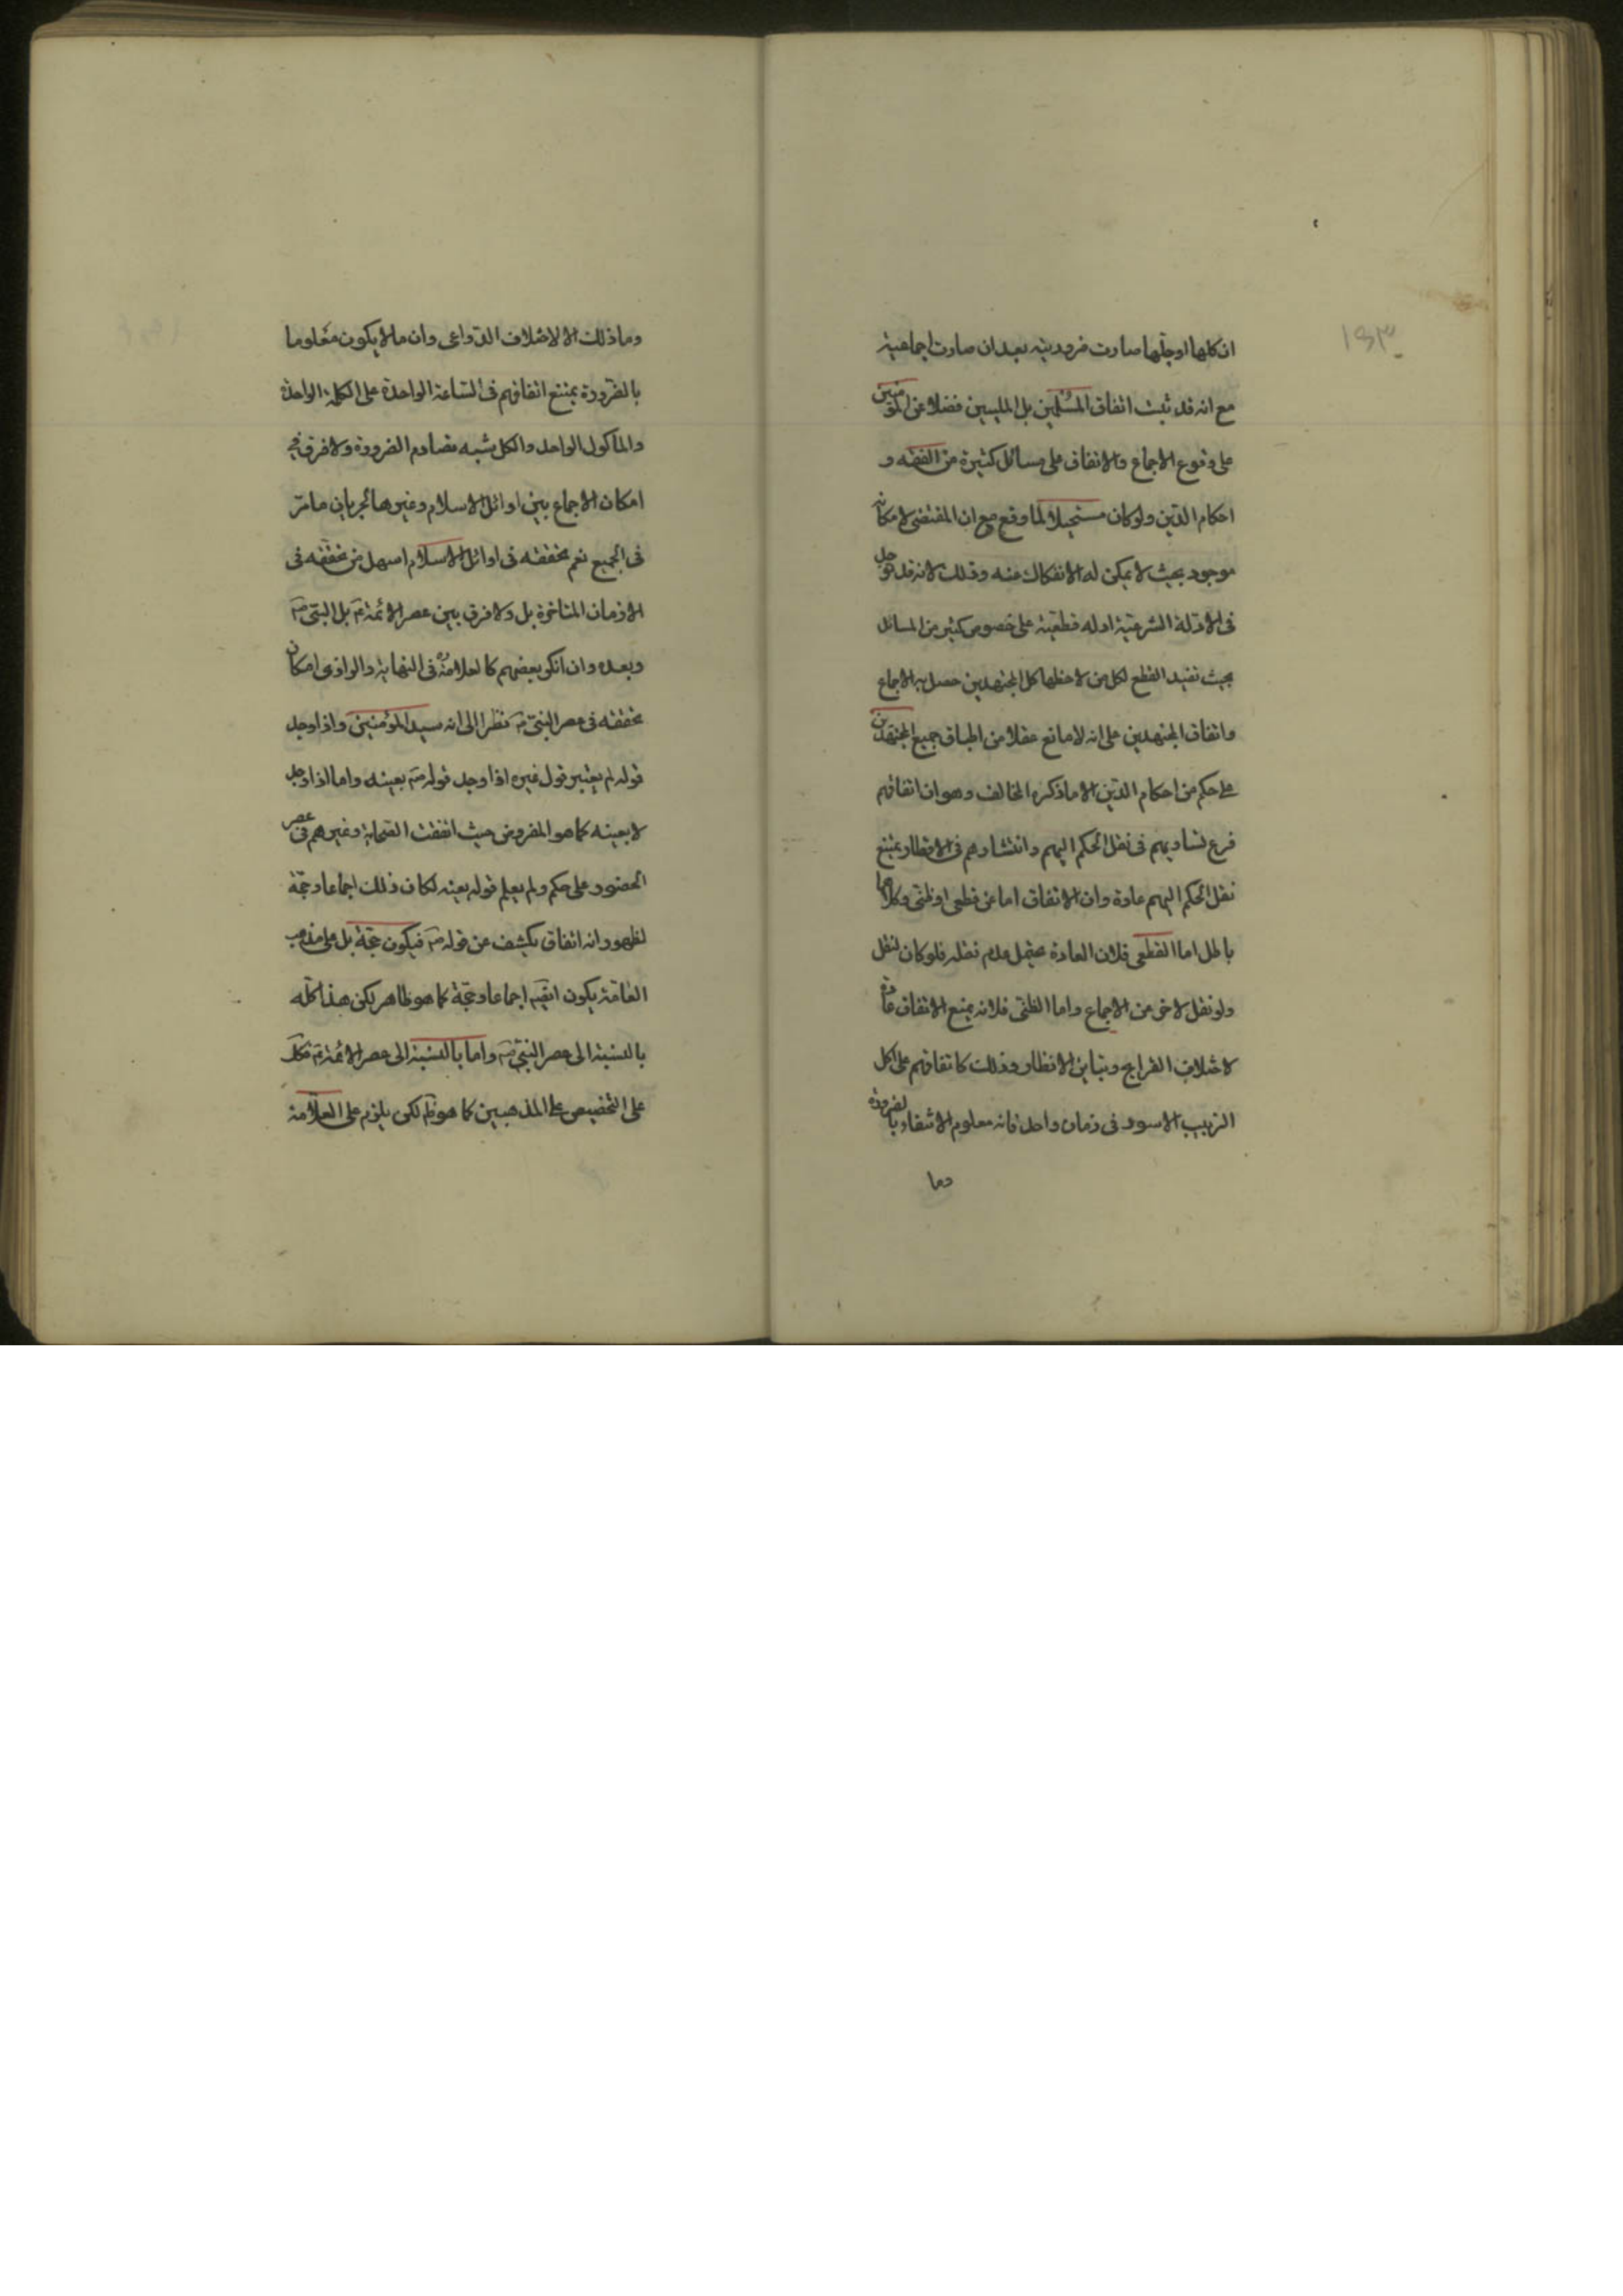 ان كلها اوجلها صارت ضروديته بعد ان صارت اجماعية
مع انه قد ثبت اتفاق المسلمين بل المليين فضلا عن المؤمنين
على وقوع الاجماع والاتفاق على مسائل كثيرة من الفقه و
احكام الدين ولو كان مستحيلا لما وقع مع ان المقتضى لامكانه
موجود بحيث لا يمكن له الانفكاك عنه وذلك لانه قد توجد
فى الادلة الشرعية ادله قطعية على خصوص كثير من المسائل
بحيث تفيد القطع لكل من لاحظها كل المجتهدين حصل به الاجماع
واتفاق المجتهدين على انه لا مانع عقلا من اطباق جميع المجتهدين
على حكم من احكام الدين الا ما ذكره المخالف وهو ان اتفاقهم
فرع تساويهم فى نقل الحكم اليهم وانتشارهم فى الاقطار يمتنع
نقل الحكم اليهم عادة وان الاتفاق اما عن قطعى او ظنى وكلاهما
باطل اما القطعى فلان العادة عدم نقله فلو كان لنقل
ولو نقل لاغنى عن الاجماع واما الظنى فلانه يمتنع الاتفاق عادة
لاختلاف القرايح وتباين الانظار وذلك كاتفاقهم على اكل
الزبيب الاسود فى زمان واحد فانه معلوم الانتفاء بالضرورة
وما
۱۵۳
وما ذلك الا لاختلاف الدواعى وان ما لا يكون معلوما
بالضرورة يمتنع اتفاقهم فى الساعة الواحدة على الكلمة الواحدة
والماكول الواحد والكل شبه مصادم الضرورة ولا فرق فى
امكان الاجماع بين اوائل الاسلام وغيرها لجريان ما مر
فى الجميع نعم تحققه فى اوائل الاسلام اسهل من تحققه فى
الازمان المتاخرة بل ولا فرق بين عصر الائمة ع بل النبى ص
وبعده وان انكر بعضهم كالعلامة ره فى النهاية والرازى امكان
تحققه فى عصر النبى ص نظرا الى انه سيد المؤمنين واذا وجد
قوله لم يعتبر قول غيره اذا وجد قوله ص بعينه واما اذا وجد
لا بعينه كما هو المفروض حيث اتفقت الصحابة وغيرهم فى عصر
الحضور على حكم ولم يعلم قوله بعينه لكان ذلك اجماعا وحجة
لظهور انه اتفاق يكشف عن قوله ص فيكون حجة بل على مذهب
العامة يكون ايضا اجماعا وحجة كما هو ظاهر لكن هذا كله
بالنسبة الى عصر النبى ص واما بالنسبة الى عصر الائمة ع فكك
على التخصيص على المذهبين كما هو ظ لكن يلزم على العلامة